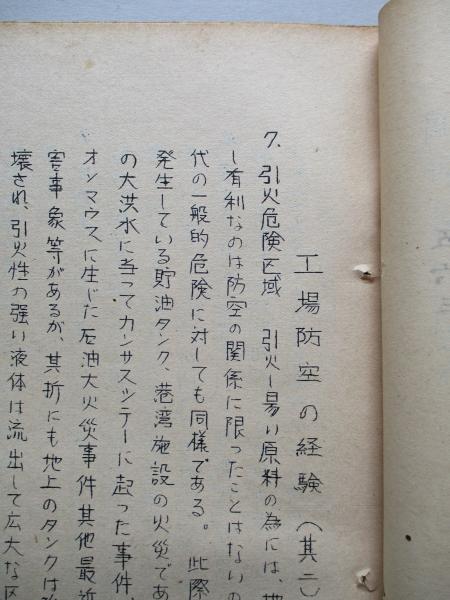 工場防空の経験（其二）
7. 引火危険区域　引火し易い原料の為には、地
し有利なのは防空の関係に限ったことはないの
代の一般的危険に対しても同様である。　此際
発生している貯油タンク、港湾施設の火災であ
の大洪水に当ってカンサスシテーに起った事件、
オンマウスに生じた石油大火災事件其他最近
害事象等があるが、其折にも地上のタンクは
壊され、引火性の強い液体は流出して広大な区